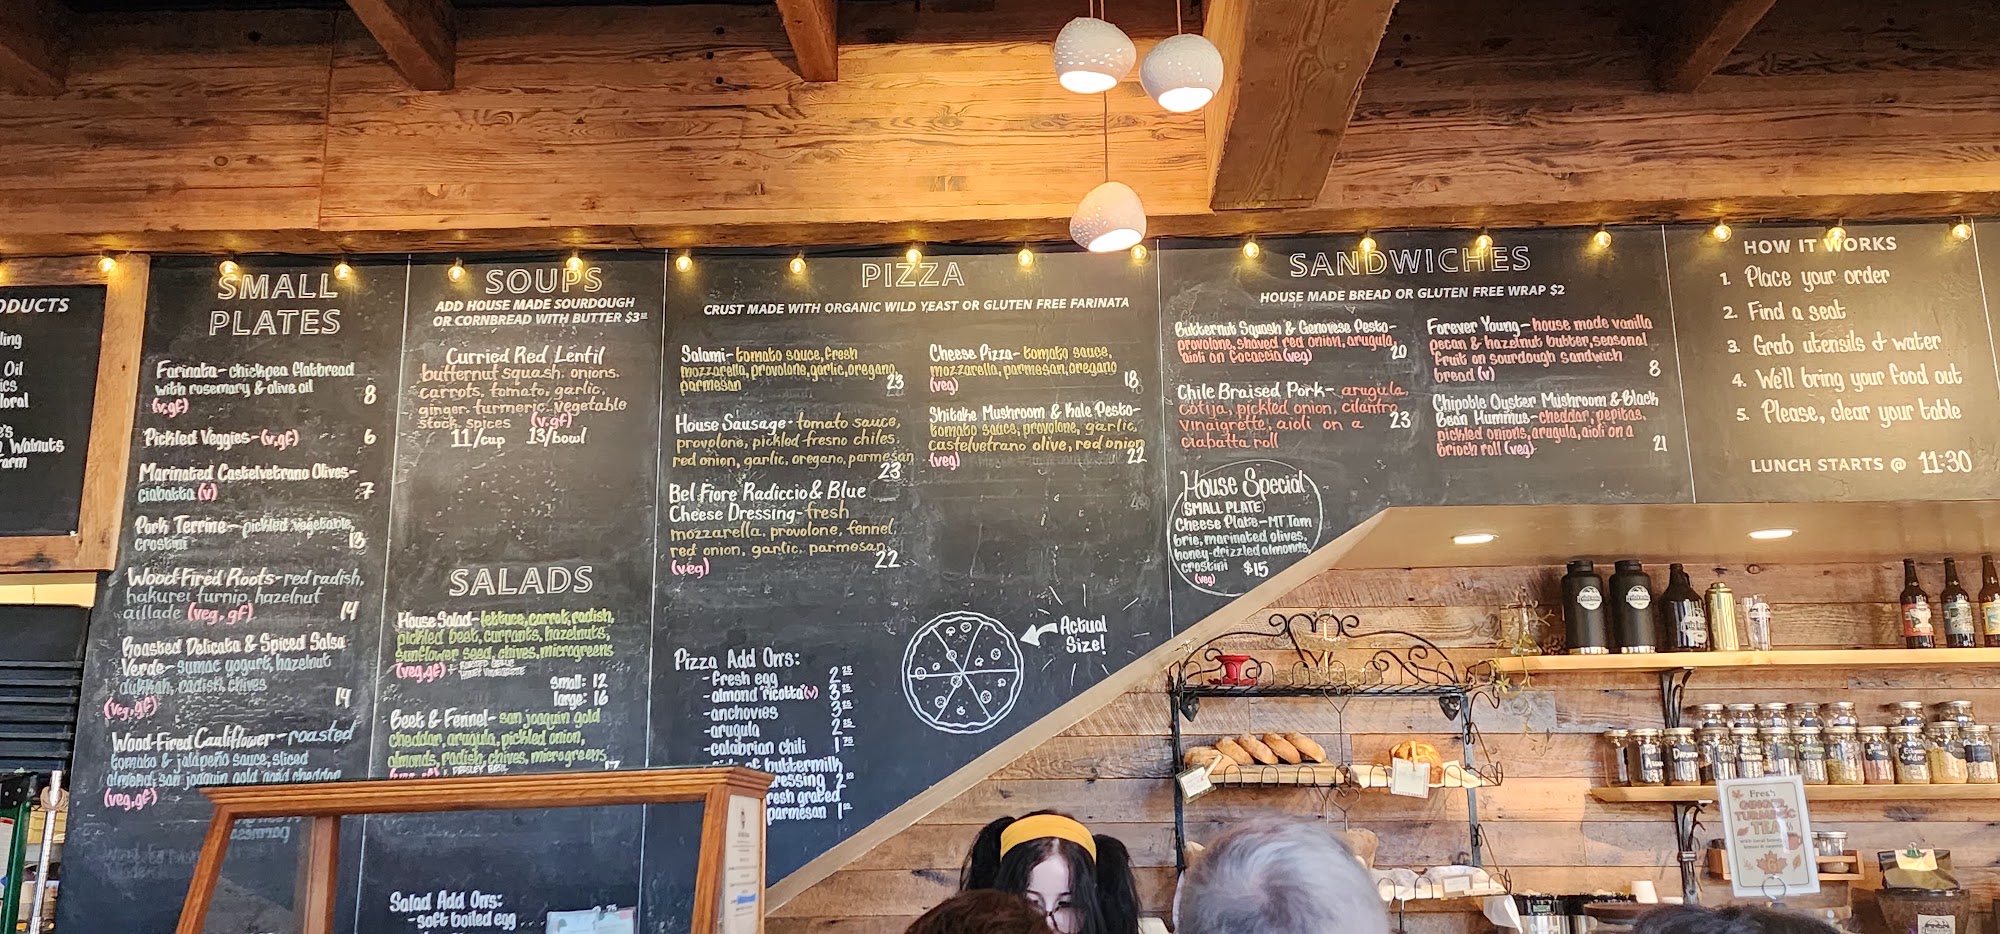 ODUCTS
ling
Oil
ics
loral
e's
Walnuts
arm
SMALL
PLATES
Farinata - chickpea flatbread
with rosemary & olive oil
(v,gf) 8
Pickled Veggies - (v,gf) 6
Marinated Castelvetrano Olives -
ciabatta (v) 7
Pork Terrine - pickled vegetable,
crostini 13
Wood-Fired Roots - red radish,
hakurei turnip, hazelnut
aillade (veg, gf) 14
Roasted Delicata & Spiced Salsa
Verde - sumac yogurt, hazelnut
dukkah, radish, chives
(veg, gf) 14
Wood-Fired Cauliflower - roasted
tomato & jalapeño sauce, sliced
almond, san joaquin gold aged cheddar
(veg,gf)
SOUPS
ADD HOUSE MADE SOURDOUGH
OR CORNBREAD WITH BUTTER $3
Curried Red Lentil
butternut squash, onions,
carrots, tomato, garlic,
ginger, turmeric, vegetable
stock, spices (v,gf)
11/cup 13/bowl
SALADS
House Salad - lettuce, carrot, radish,
pickled beet, currants, hazelnuts,
sunflower seed, chives, microgreens
(veg,gf) +
small: 12
large: 16
Beet & Fennel - san joaquin gold
cheddar, arugula, pickled onion,
almonds, radish, chives, microgreens
Salad Add Ons:
- soft boiled egg
PIZZA
CRUST MADE WITH ORGANIC WILD YEAST OR GLUTEN FREE FARINATA
Salami - tomato sauce, fresh
mozzarella, provolone, garlic, oregano,
parmesan 23
House Sausage - tomato sauce,
provolone, pickled fresno chiles,
red onion, garlic, oregano, parmesan
23
Bel Fiore Radiccio & Blue
Cheese Dressing - fresh
mozzarella, provolone, fennel,
red onion, garlic, parmesan
(veg) 22
Cheese Pizza - tomato sauce,
mozzarella, parmesan, oregano
(veg) 18
Shitake Mushroom & Kale Pesto -
tomato sauce, provolone, garlic,
castelvetrano olive, red onion
(veg) 22
Pizza Add Ons:
- fresh egg 2 25
- almond "ricotta" (v) 3
- anchovies 3
- arugula 2
- calabrian chili 1 75
of buttermilk
ressing 2
resh grated
parmesan 1
Actual
Size!
SANDWICHES
HOUSE MADE BREAD OR GLUTEN FREE WRAP $2
Butternut Squash & Genovese Pesto -
provolone, shaved red onion, arugula,
aioli on focaccia (veg) 20
Chile Braised Pork - arugula,
cotija, pickled onion, cilantro
vinaigrette, aioli on a 23
ciabatta roll
House Special
(SMALL PLATE)
Cheese Plate - MT Tam
brie, marinated olives,
honey-drizzled almonds,
crostini $15
(veg)
Forever Young - house made vanilla
pecan & hazelnut butter, seasonal
fruit on sourdough sandwich
bread (v) 8
Chipotle Oyster Mushroom & Black
Bean Hummus - cheddar, pepitas,
pickled onions, arugula, aioli on a
brioch roll (veg) 21
HOW IT WORKS
1. Place your order
2. Find a seat
3. Grab utensils & water
4. We'll bring your food out
5. Please, clear your table
LUNCH STARTS @ 11:30
Fresh
GINGER
TURMERIC
TEA